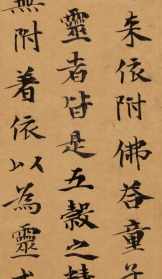 朱依附佛答童子
靈者皆是五穀之精
無附着依以為靈或